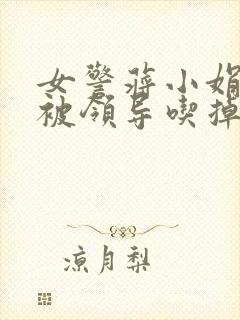 女警蒋小娟
被领导喫掉
凉月梨